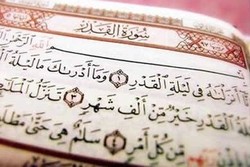 سُورَةُ القَدْرِ
أَنزَلْنَٰهُ فِي لَيْلَةِ ٱلْقَدْرِ ١ وَمَآ أَدْرَىٰكَ مَا لَيْلَةُ
ٱلْقَدْرِ خَيْرٌ مِّنْ أَلْفِ شَهْرٍ ٣ تَنَزَّلُ
مِّن كُلِّ أَمْرٍ ٤ سَلَٰمٌ هِيَ حَتَّىٰ